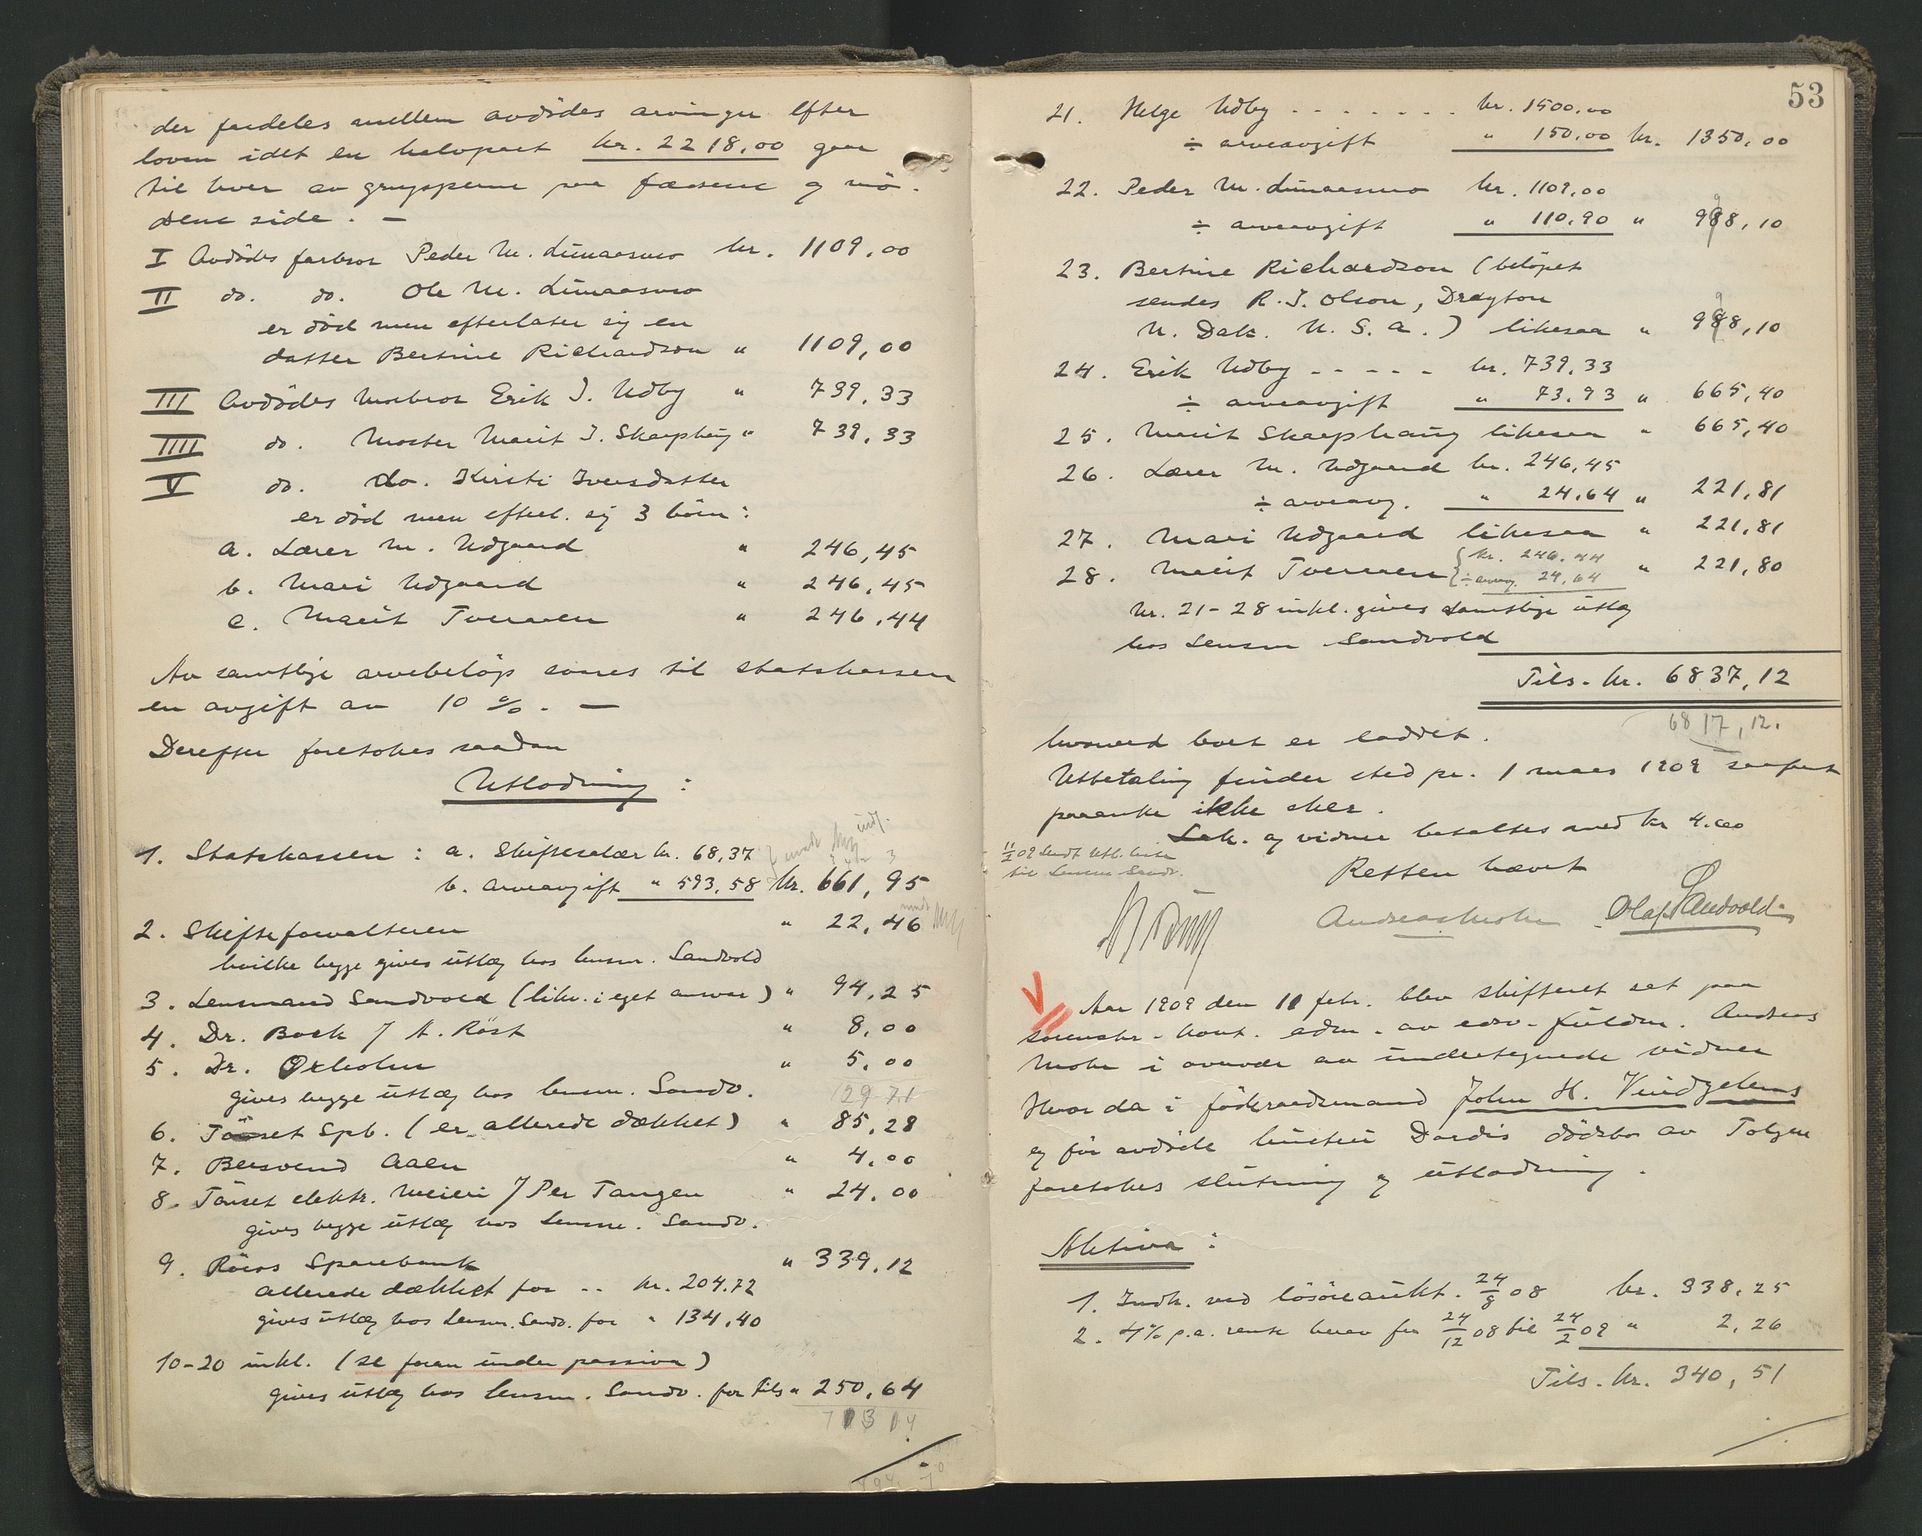 der fordeles mellem avdödes arvinger efter
loven idet en halvpart kr. 2218,00 gaar
til hver av grupperne paa farsene og mö-
dene side. —
I Avdödes farbror Peder M. Limaasmo kr. 1109,00
II do. do. Ole M. Limaasmo
er död men efterlater sig en
datter Bertine Richardson " 1109,00
III Avdödes morbror Erik J. Udby " 739,33
IIII do. Moster Marit J. Skarphaug " 739,33
V do. do. Kirsti Iversdatter
er död men efterl. sig 3 börn:
a. Lærer M. Udgaard " 246,45
b. Mari Udgaard " 246,45
c. Marit Tveraaen " 246,44
Av samtlige arvebelöp svares til statskassen
en avgift av 10 %. —
Derefter foretokes saadan
Utlodning:
1. Statskassen: a. Skiftesalær kr. 68,37
b. arveavgift " 593,58 kr. 661,95
2. Skifteforvalteren " 22,46
hvilke begge gives utlæg hos lensm. Sandvold
3. Lensmand Sandvold (likv. i eget ansvar) " 94,25
4. Dr. Bock / A. Röst " 8,00
5. Dr. Ørholm " 5,00
gives begge utlæg hos lensm. Sandv.
6. Tönset Spb. (er allerede dækket) " 85,28
7. Bersvend Aaen " 4,00
8. Tönset elektr. Meieri / Per Tangen " 24,00
gives begge utlæg hos lensm. Sandv.
9. Röros Sparebank " 339,12
allerede dækket for .. kr. 204,72
gives utlæg hos Lensm. Sandv. for " 134,40
10-20 inkl. (se foran under passiva)
gives utlæg hos lensm. Sandv. for tils " 250,64
53
21. Helge Udby - - - - - - - kr. 1500,00
÷ arveavgift " 150,00 kr. 1350,00
22. Peder M. Limaasmo kr. 1109,00
÷ arveavgift " 110,90 " 998,10
23. Bertine Richardson (belöpet
sendes R. J. Olson, Drayton
N. Dak. U. S. A.) likesaa " 998,10
24. Erik Udby - - - - - kr. 739,33
÷ arveavgift " 73,93 " 665,40
25. Marit Skarphaug likesaa " 665,40
26. Lærer M. Udgaard kr. 246,45
÷ arveavg. " 24,64 " 221,81
27. Mari Udgaard likesaa " 221,81
28. Marit Tveraaen { kr. 246,44 " 221,80
÷ arveavg. 24,64
Nr. 21-28 inkl. gives samtlige utlæg
hos lensm Sandvold
Tils. kr. 6837,12
6817,12.
hvorved boet er loddet.
Utbetaling finder sted pr. 1 mars 1909 saafremt
paaanke ikke sker.
Sak. og vidner betaltes med kr 4.00
11/2 09 Sendt utb. liste
til Lensm Sandv.
Retten hævet
Andreas Mohn Olaf Sandvold
Aar 1909 den 11 febr. blev skifteret sat paa
sorenskr.-kont. adm. av edsv. fuldm. Andreas
Mohn i overvær av undertegnede vidner
Hvor da i föderaadsmand John H. Vindgelens
og för avdöde hustru Dordis dödsbo av Tolgen
foretokes slutning og utlodning.
Aktiva:
1. Indk. ved lösöreaukt. 24/8 08 kr. 338,25
2. 4% p.a. rente herav fra 24/12 08 til 24/2 09 " 2,26
Tils. kr. 340,51